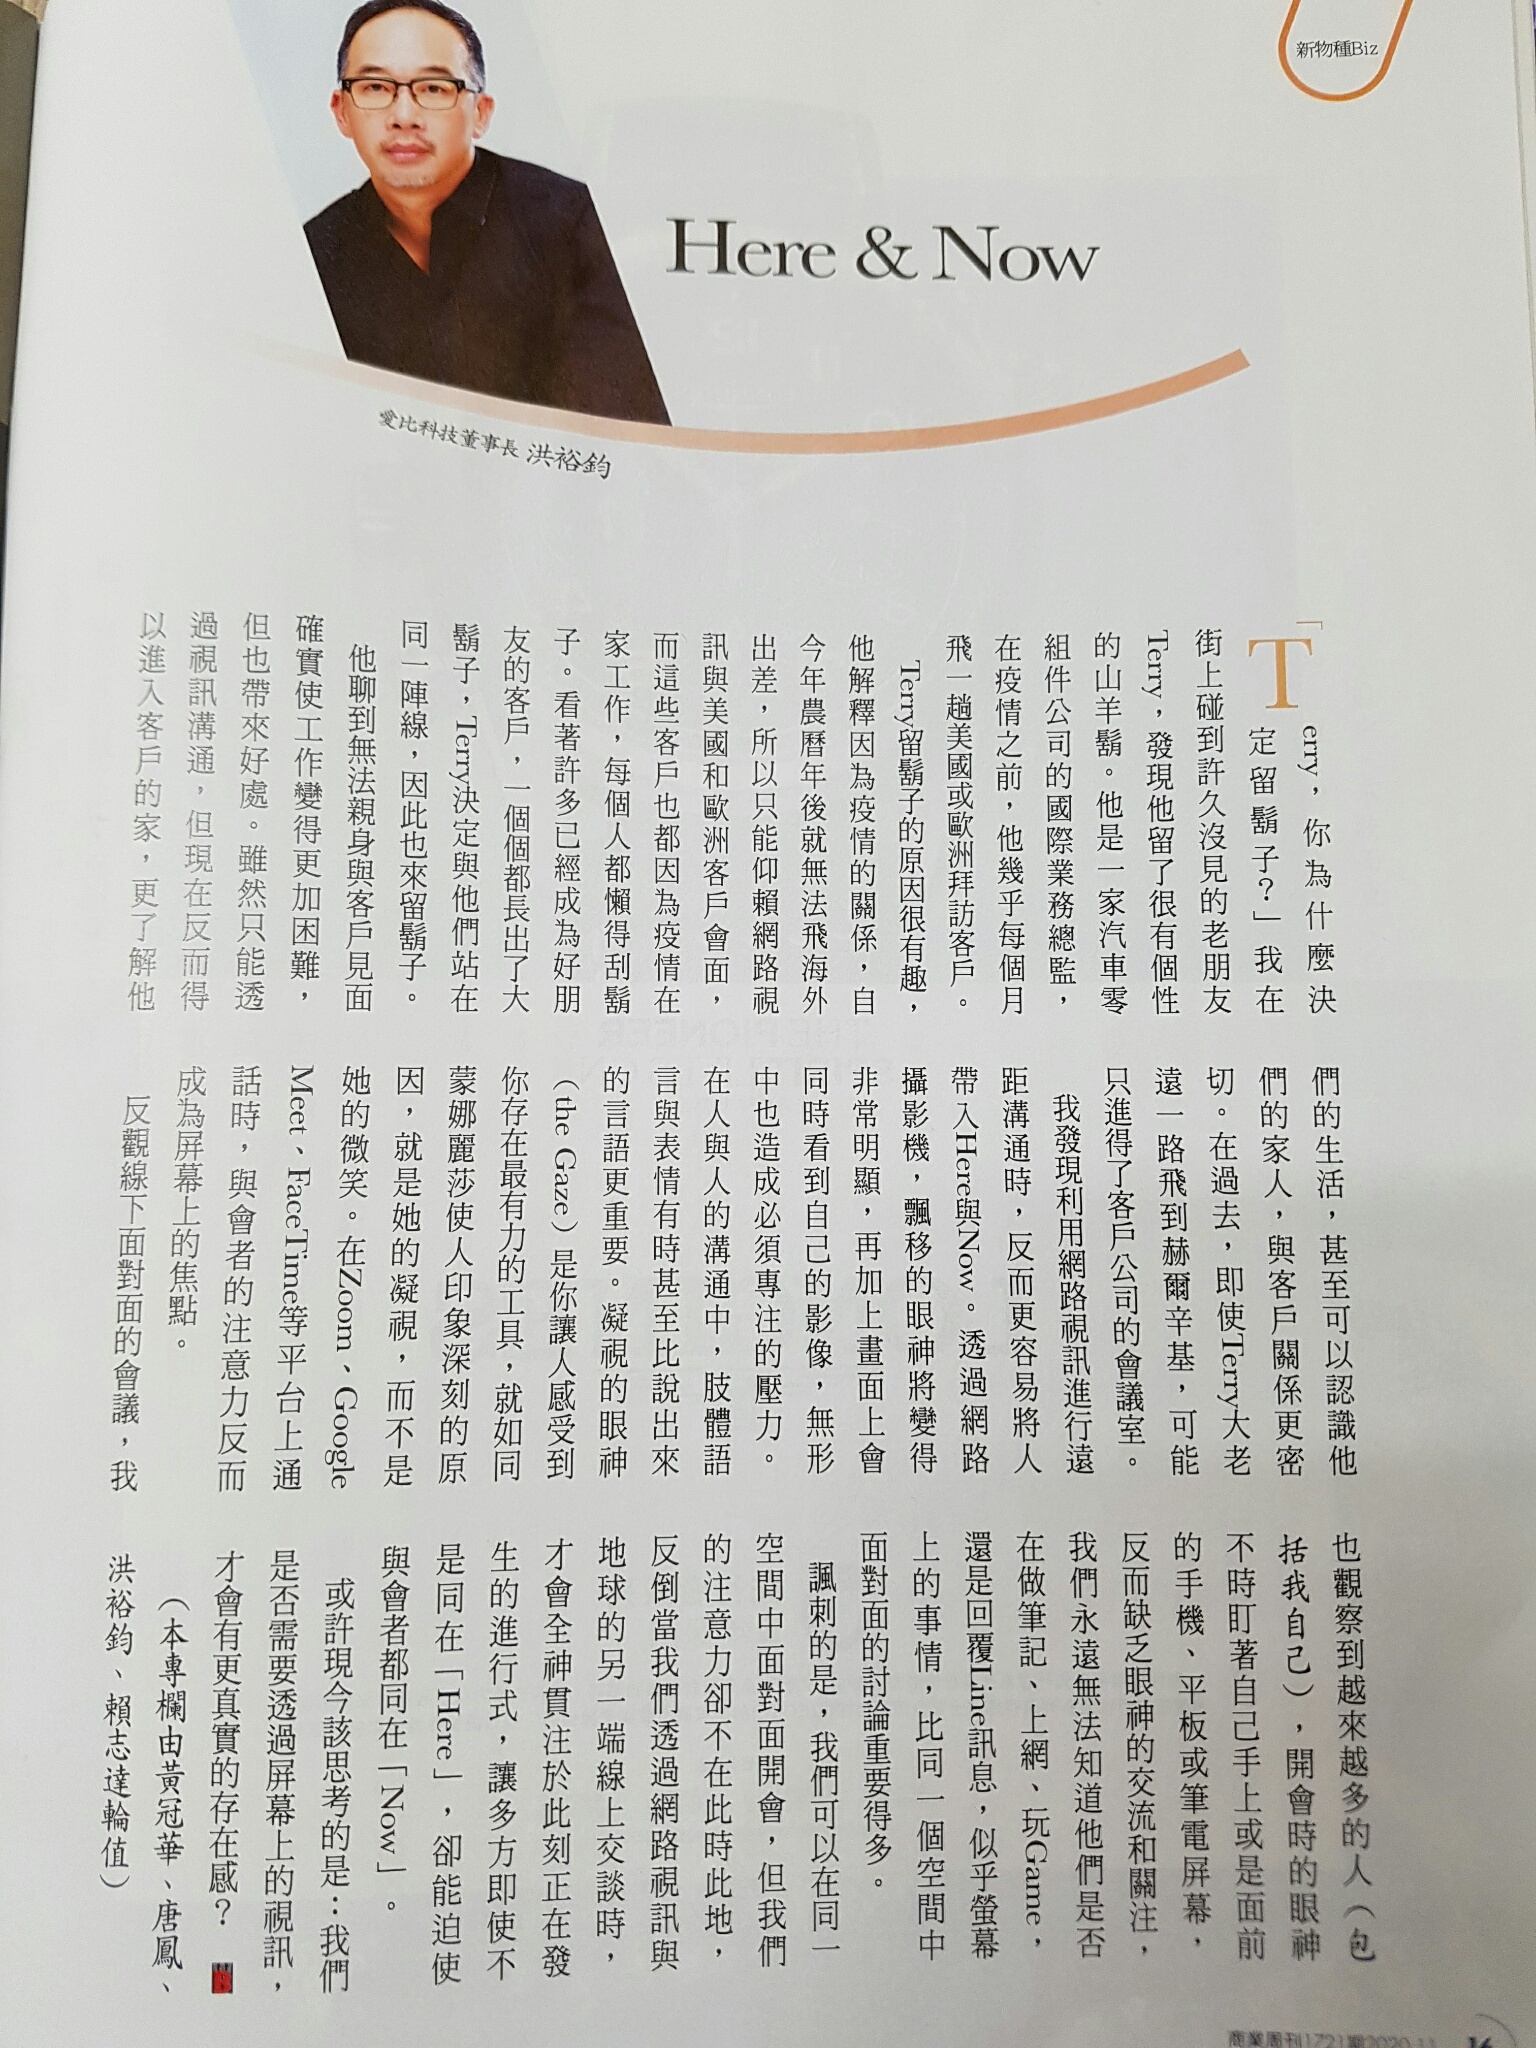 新物種Biz
Here & Now
愛比科技董事長 洪裕鈞
「Terry，你為什麼決
定留鬍子？」我在
街上碰到許久沒見的老朋友
Terry，發現他留了很有個性
的山羊鬍。他是一家汽車零
組件公司的國際業務總監，
在疫情之前，他幾乎每個月
飛一趟美國或歐洲拜訪客戶。
Terry留鬍子的原因很有趣，
他解釋因為疫情的關係，自
今年農曆年後就無法飛海外
出差，所以只能仰賴網路視
訊與美國和歐洲客戶會面，
而這些客戶也都因為疫情在
家工作，每個人都懶得刮鬍
子。看著許多已經成為好朋
友的客戶，一個個都長出了大
鬍子，Terry決定與他們站在
同一陣線，因此也來留鬍子。
他聊到無法親身與客戶見面
確實使工作變得更加困難，
但也帶來好處。雖然只能透
過視訊溝通，但現在反而得
以進入客戶的家，更了解他
們的生活，甚至可以認識他
們的家人，與客戶關係更密
切。在過去，即使Terry大老
遠一路飛到赫爾辛基，可能
只進得了客戶公司的會議室。
我發現利用網路視訊進行遠
距溝通時，反而更容易將人
帶入Here與Now。透過網路
攝影機，飄移的眼神將變得
非常明顯，再加上畫面上會
同時看到自己的影像，無形
中也造成必須專注的壓力。
在人與人的溝通中，肢體語
言與表情有時甚至比說出來
的言語更重要。凝視的眼神
（the Gaze）是你讓人感受到
你存在最有力的工具，就如同
蒙娜麗莎使人印象深刻的原
因，就是她的凝視，而不是
她的微笑。在Zoom、Google
Meet、FaceTime等平台上通
話時，與會者的注意力反而
成為屏幕上的焦點。
反觀線下面對面的會議，我
也觀察到越來越多的人（包
括我自己），開會時的眼神
不時盯著自己手上或是面前
的手機、平板或筆電屏幕，
反而缺乏眼神的交流和關注，
我們永遠無法知道他們是否
在做筆記、上網、玩Game，
還是回覆Line訊息，似乎螢幕
上的事情，比同一個空間中
面對面的討論重要得多。
諷刺的是，我們可以在同一
空間中面對面開會，但我們
的注意力卻不在此時此地，
反倒當我們透過網路視訊與
地球的另一端線上交談時，
才會全神貫注於此刻正在發
生的進行式，讓多方即使不
是同在「Here」，卻能迫使
與會者都同在「Now」。
或許現今該思考的是：我們
是否需要透過屏幕上的視訊，
才會有更真實的存在感？
（本專欄由黃冠華、唐鳳、
洪裕鈞、賴志達輪值）
商業周刊1721期2020.11